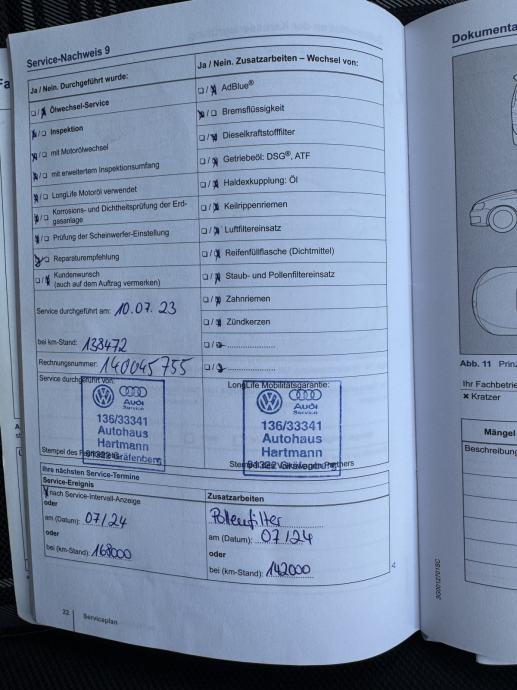 Service-Nachweis 9
Ja / Nein. Durchgeführt wurde:
Ölwechsel-Service
Inspektion
mit Motorölwechsel
mit erweitertem Inspektionsumfang
LongLife Motoröl verwendet
Korrosions- und Dichtheitsprüfung der Erd-
gasanlage
Prüfung der Scheinwerfer-Einstellung
Reparaturempfehlung
Kundenwunsch
(auch auf dem Auftrag vermerken)
Service durchgeführt am: 10.07.23
bei km-Stand: 138472
Rechnungsnummer: 140045755
Service durchgeführt von:
Audi
Service
136/33341
Autohaus
Hartmann
91322 Gräfenberg
Ja / Nein. Zusatzarbeiten – Wechsel von:
AdBlue®
Bremsflüssigkeit
Dieselkraftstofffilter
Getriebeöl: DSG®, ATF
Haldexkupplung: Öl
Keilrippenriemen
Luftfiltereinsatz
Reifenfüllflasche (Dichtmittel)
Staub- und Pollenfiltereinsatz
Zahnriemen
Zündkerzen
LongLife Mobilitätsgarantie:
Audi
Service
136/33341
Autohaus
Hartmann
91322 Gräfenberg
Ihre nächsten Service-Termine
Service-Ereignis
nach Service-Intervall-Anzeige
oder
am (Datum): 07/24
oder
bei (km-Stand): 168000
Zusatzarbeiten
Pollenfilter
am (Datum): 07/24
oder
bei (km-Stand): 142000
22 Serviceplan
Dokumenta
Abb. 11 Prinz
Ihr Fachbetrie
× Kratzer
Mängel
Beschreibung
3G0012701BC